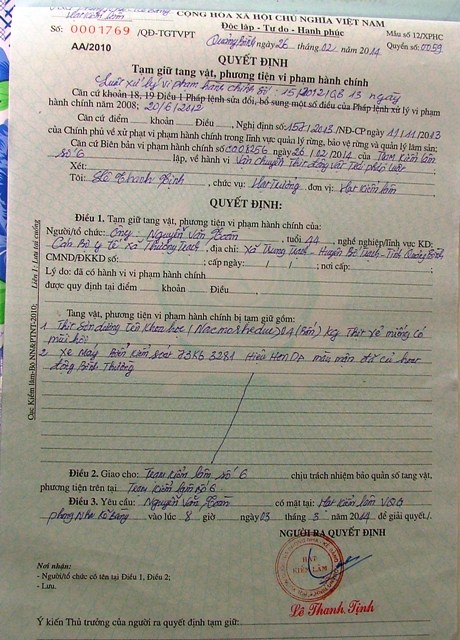 CỘNG HÒA XÃ HỘI CHỦ NGHĨA VIỆT NAM
Độc lập - Tự do - Hạnh phúc
Mẫu số 12/XPHC
Số: 0001769 /QĐ-TGTVPT
Quyển số: 0059
AA/2010
Quảng Bình ngày 26 tháng 02 năm 2014
QUYẾT ĐỊNH
Tạm giữ tang vật, phương tiện vi phạm hành chính
Luật xử lý vi phạm hành chính số: 15/2012/QH 13 ngày
Căn cứ khoản 18, 19 Điều 1 Pháp lệnh sửa đổi, bổ sung một số điều của Pháp lệnh xử lý vi phạm
hành chính năm 2008; 20/6/2012
Căn cứ điểm khoản Điều , Nghị định số 157/2013/NĐ-CP ngày 11/11/2013
của Chính phủ về xử phạt vi phạm hành chính trong lĩnh vực quản lý rừng, bảo vệ rừng và quản lý lâm sản;
Căn cứ Biên bản vi phạm hành chính số 0008256 ngày 26/02/2014 của Trạm Kiểm lâm
số 6 lập, về hành vi Vận chuyển Thịt động vật Trái phép
Xét:
Tôi: Lê Thanh Tịnh, chức vụ: Hạt trưởng đơn vị: Hạt Kiểm lâm
QUYẾT ĐỊNH:
Điều 1. Tạm giữ tang vật, phương tiện vi phạm hành chính của:
Người/tổ chức: Ông Nguyễn Văn, tuổi 44, nghề nghiệp/lĩnh vực KD:
Cán Bộ y Tế xã Thượng Trạch, địa chỉ: xã Trung Trạch - Huyện Bố Trạch - Tỉnh Quảng Bình
CMND/ĐKKD số: cấp ngày: / / nơi cấp:
Lý do: đã có hành vi vi phạm hành chính
được quy định tại điểm khoản Điều
Tang vật, phương tiện vi phạm hành chính bị tạm giữ gồm:
1 Thịt Sơn dương Tên Khoa học ( ) 04 (Bốn) kg Thịt xẻ miếng có
mùi hôi
2 Xe Máy Biển Kiểm soát 73K6 3281 Hiệu HonDa màu mận đã cũ hoạt
động Bình Thường
Điều 2. Giao cho: Trạm Kiểm lâm số 6 chịu trách nhiệm bảo quản số tang vật,
phương tiện trên tại Trạm Kiểm lâm Số 6
Điều 3. Yêu cầu: Nguyễn Văn có mặt tại: Hạt Kiểm lâm VQG
phong Nha Kẻ Bàng vào lúc 8 giờ ngày 03 tháng 3 năm 2014 để giải quyết/.
NGƯỜI RA QUYẾT ĐỊNH
Nơi nhận:
- Người/tổ chức có tên tại Điều 1, Điều 2;
- Lưu.
HẠT
KIỂM LÂM
Lê Thanh Tịnh
Ý kiến Thủ trưởng của người ra quyết định tạm giữ:
Cục Kiểm lâm-Bộ NN&PTNT-2010;
Liên 1: Lưu tại cuống